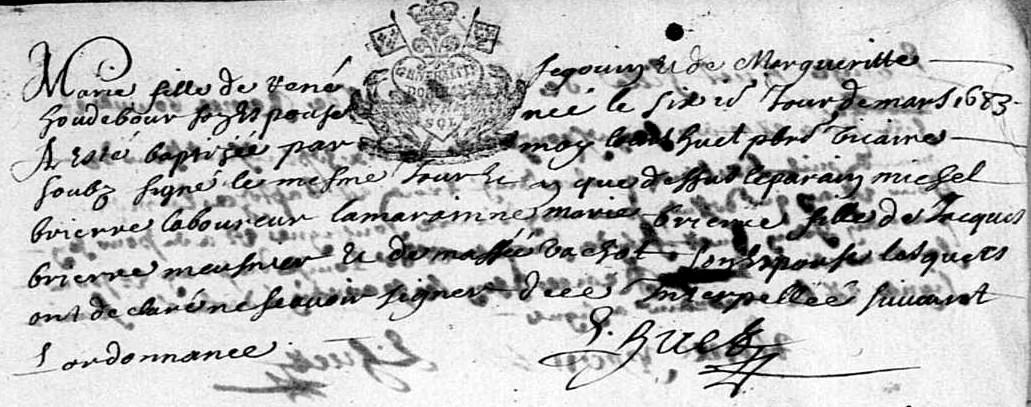 Marie fille de René Segouin et de Margueritte
houdebour son Espouse née le six ie Jour de mars 1683
A Esté baptizée par moy huet pbre vicaire
soubz signé le mesme Jour et an que dessus le parain michel
brierre laboureur la marainne marie brierre fille de Jacques
brierre meusnier et de massée vachot son Espouse lesquels
ont declaré ne scavoir signer de ce Interpellée suivant
l'ordonnance.
GENERALITE
SOL
Huet